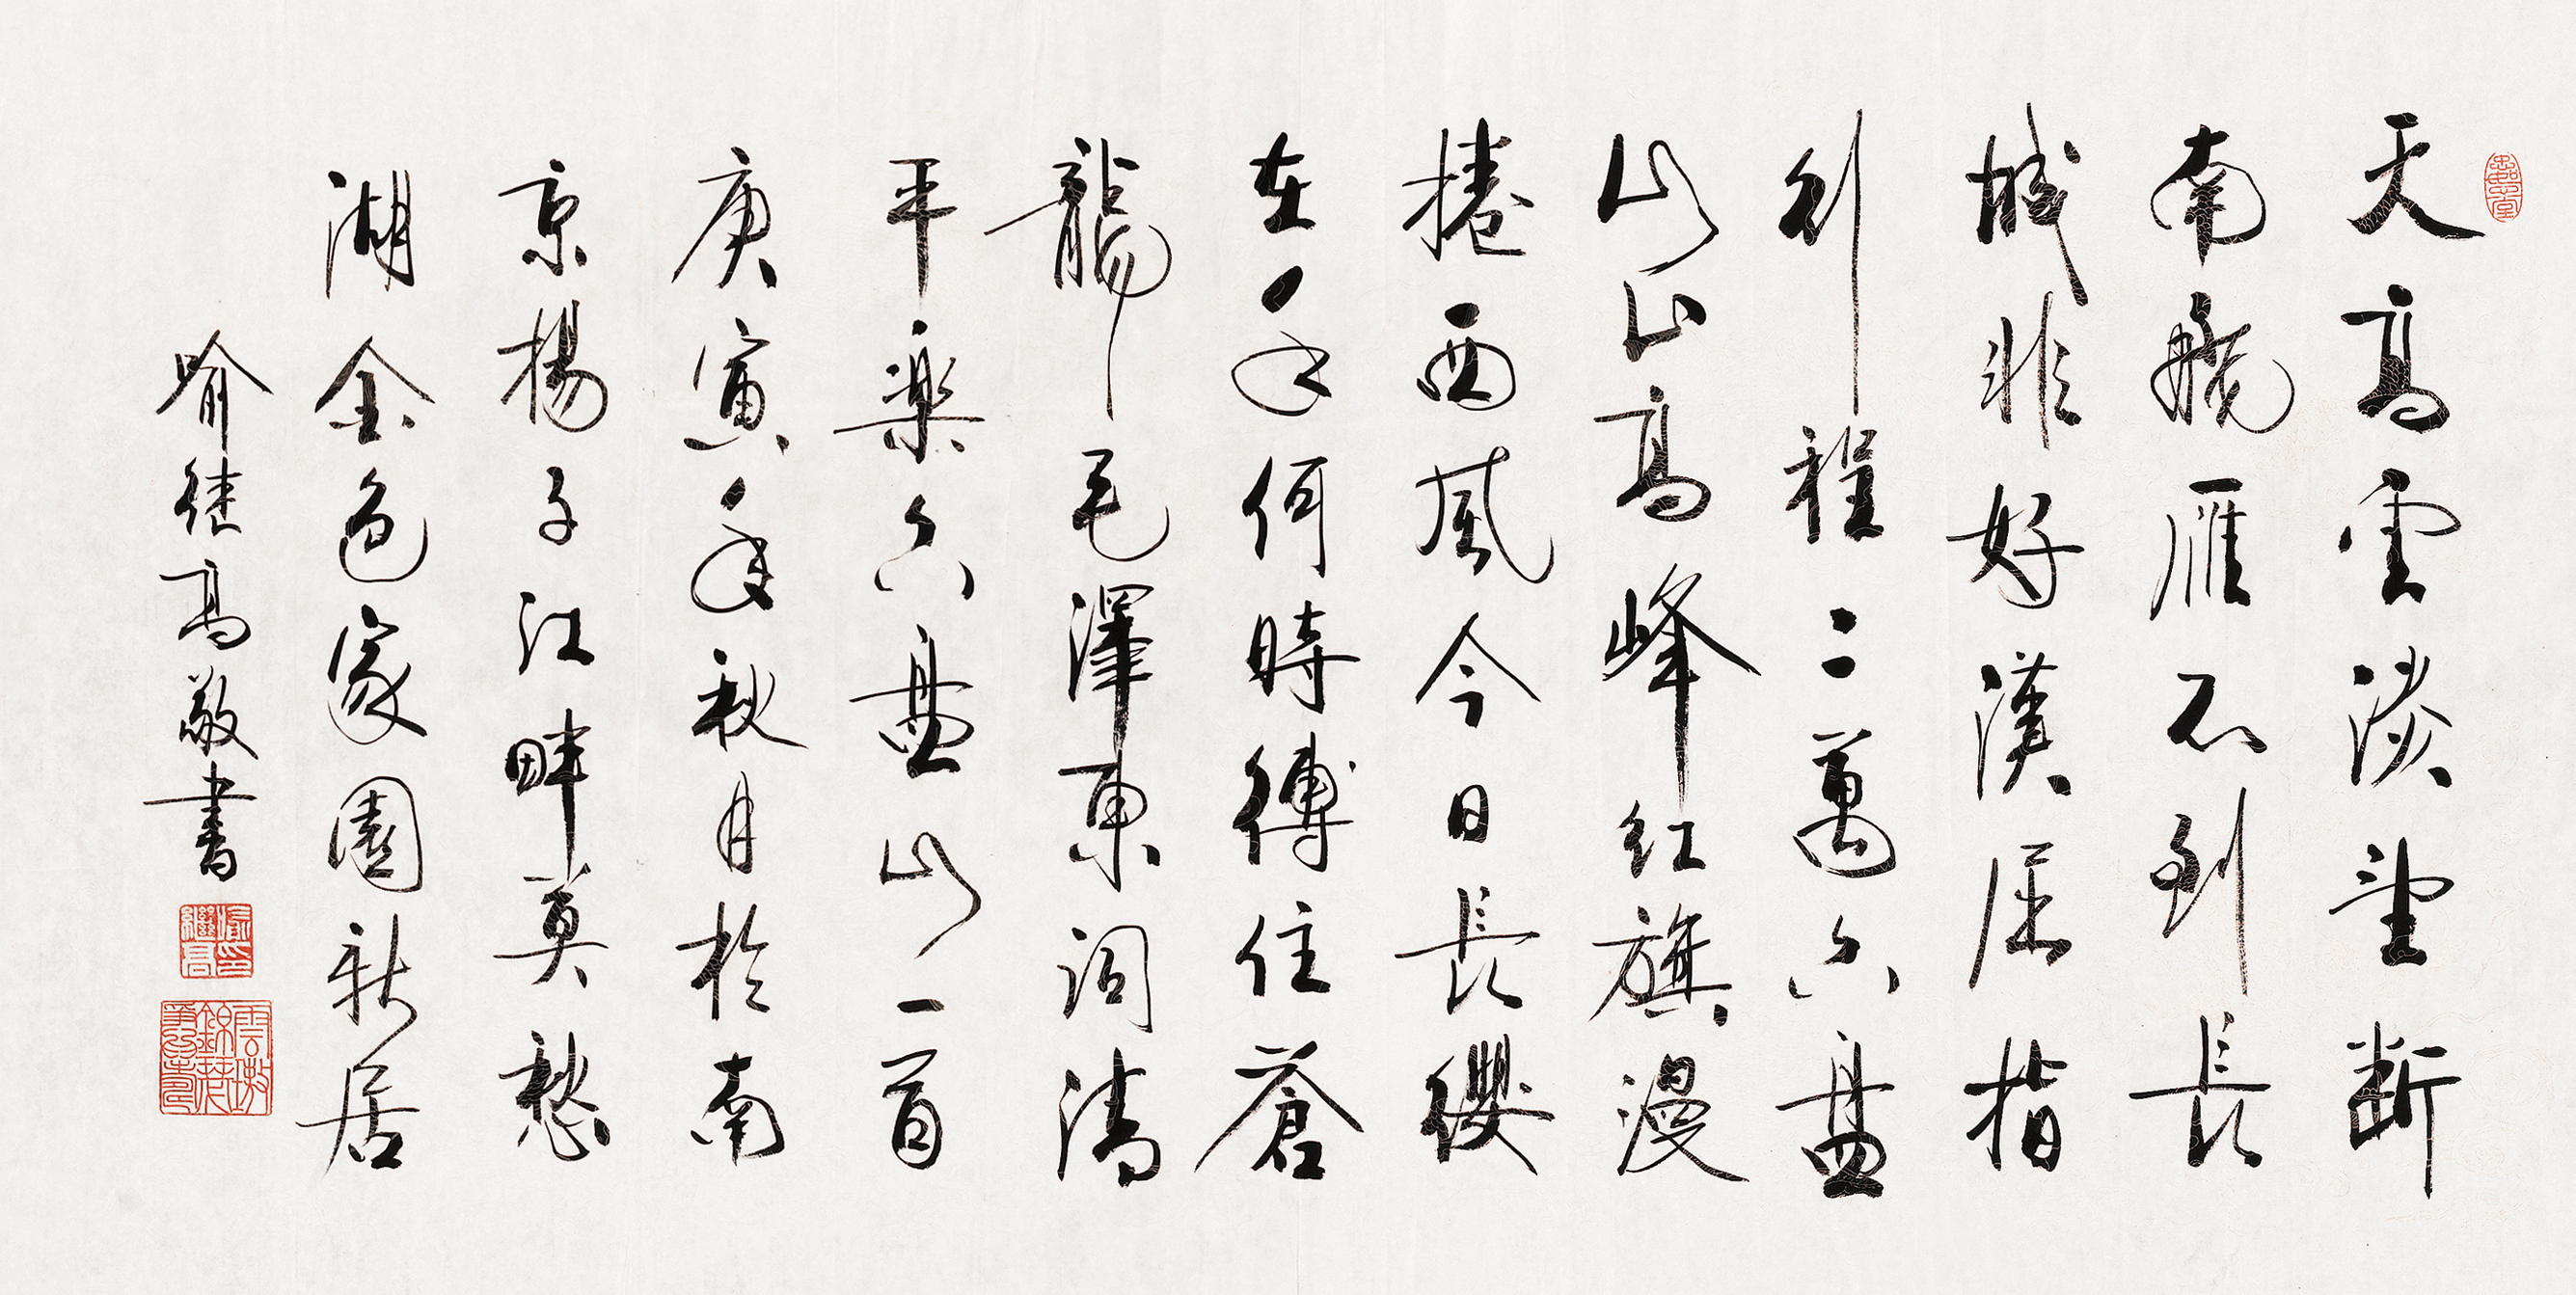 天高雲淡望斷
南飛雁不到長
城非好漢屈指
行程二萬六盤
山山高峰紅旗漫
捲西風今日長纓
在手何時縛住蒼
龍毛澤東詞清
平樂六盤山一首
庚寅年秋月於南
京揚子江畔莫愁
湖金色家園新居
喻继高敬書